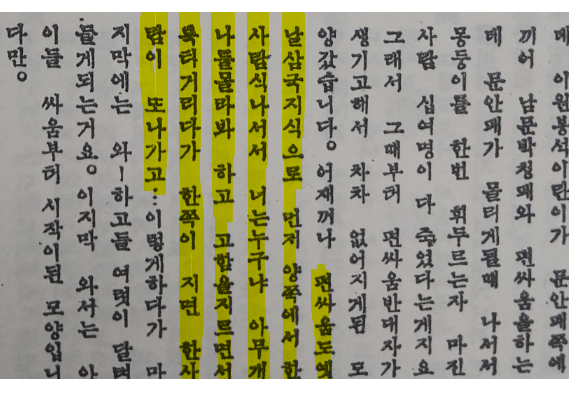 데 이원봉석이란이가 문안패쪽에
끼어 남문박청패와 편싸움을하는
데 문안패가 몰리게될때 나서서
몽둥이를 한번 휘두르는자 마진
사람 십여명이 다 죽었다는게지요
그래서 그때부터 편싸움반대자가
생기고해서 차차 없어지게된 모
양갔습니다。어재꺼나 편싸움도옛
날삼국지식으로 먼저 양쪽에서 한
사람식나서서 너는누구냐 아무개
나를몰라봐 하고 고함을지르면서
툭타거리다가 한쪽이 지면 한사
람이 또나가고…이렇게하다가 마
지막에는 와ㅣ하고들 여럿이 달려
들게되는거요。이지막 와서는 아
이들 싸움부터 시작이된 모양입니
다만。